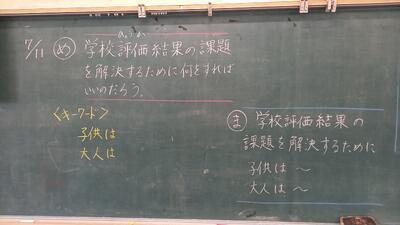 7/11 め 学校評価結果の課題
を解決するために何をすれば
いいのだろう。
<キーワード>
子供は
大人は
ま 学校評価結果の
課題を解決するために
子供は〜
大人は〜